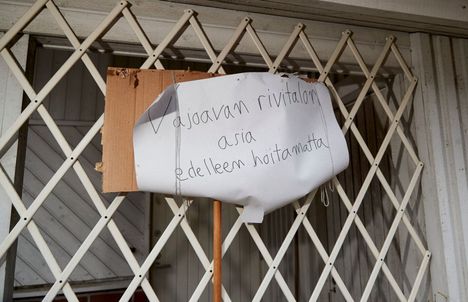 Vajoavan rivitalon
asia
edelleen hoitamatta